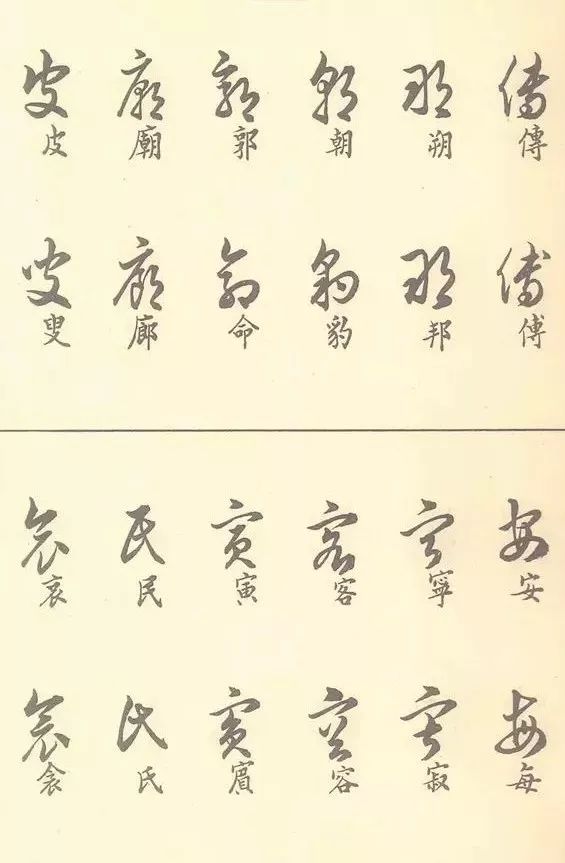 傳 朔 朝 郭 廟 皮
傅 邦 豹 命 廊 叟
安 寧 客 寅 民 哀
每 寂 容 賓 氏 衾